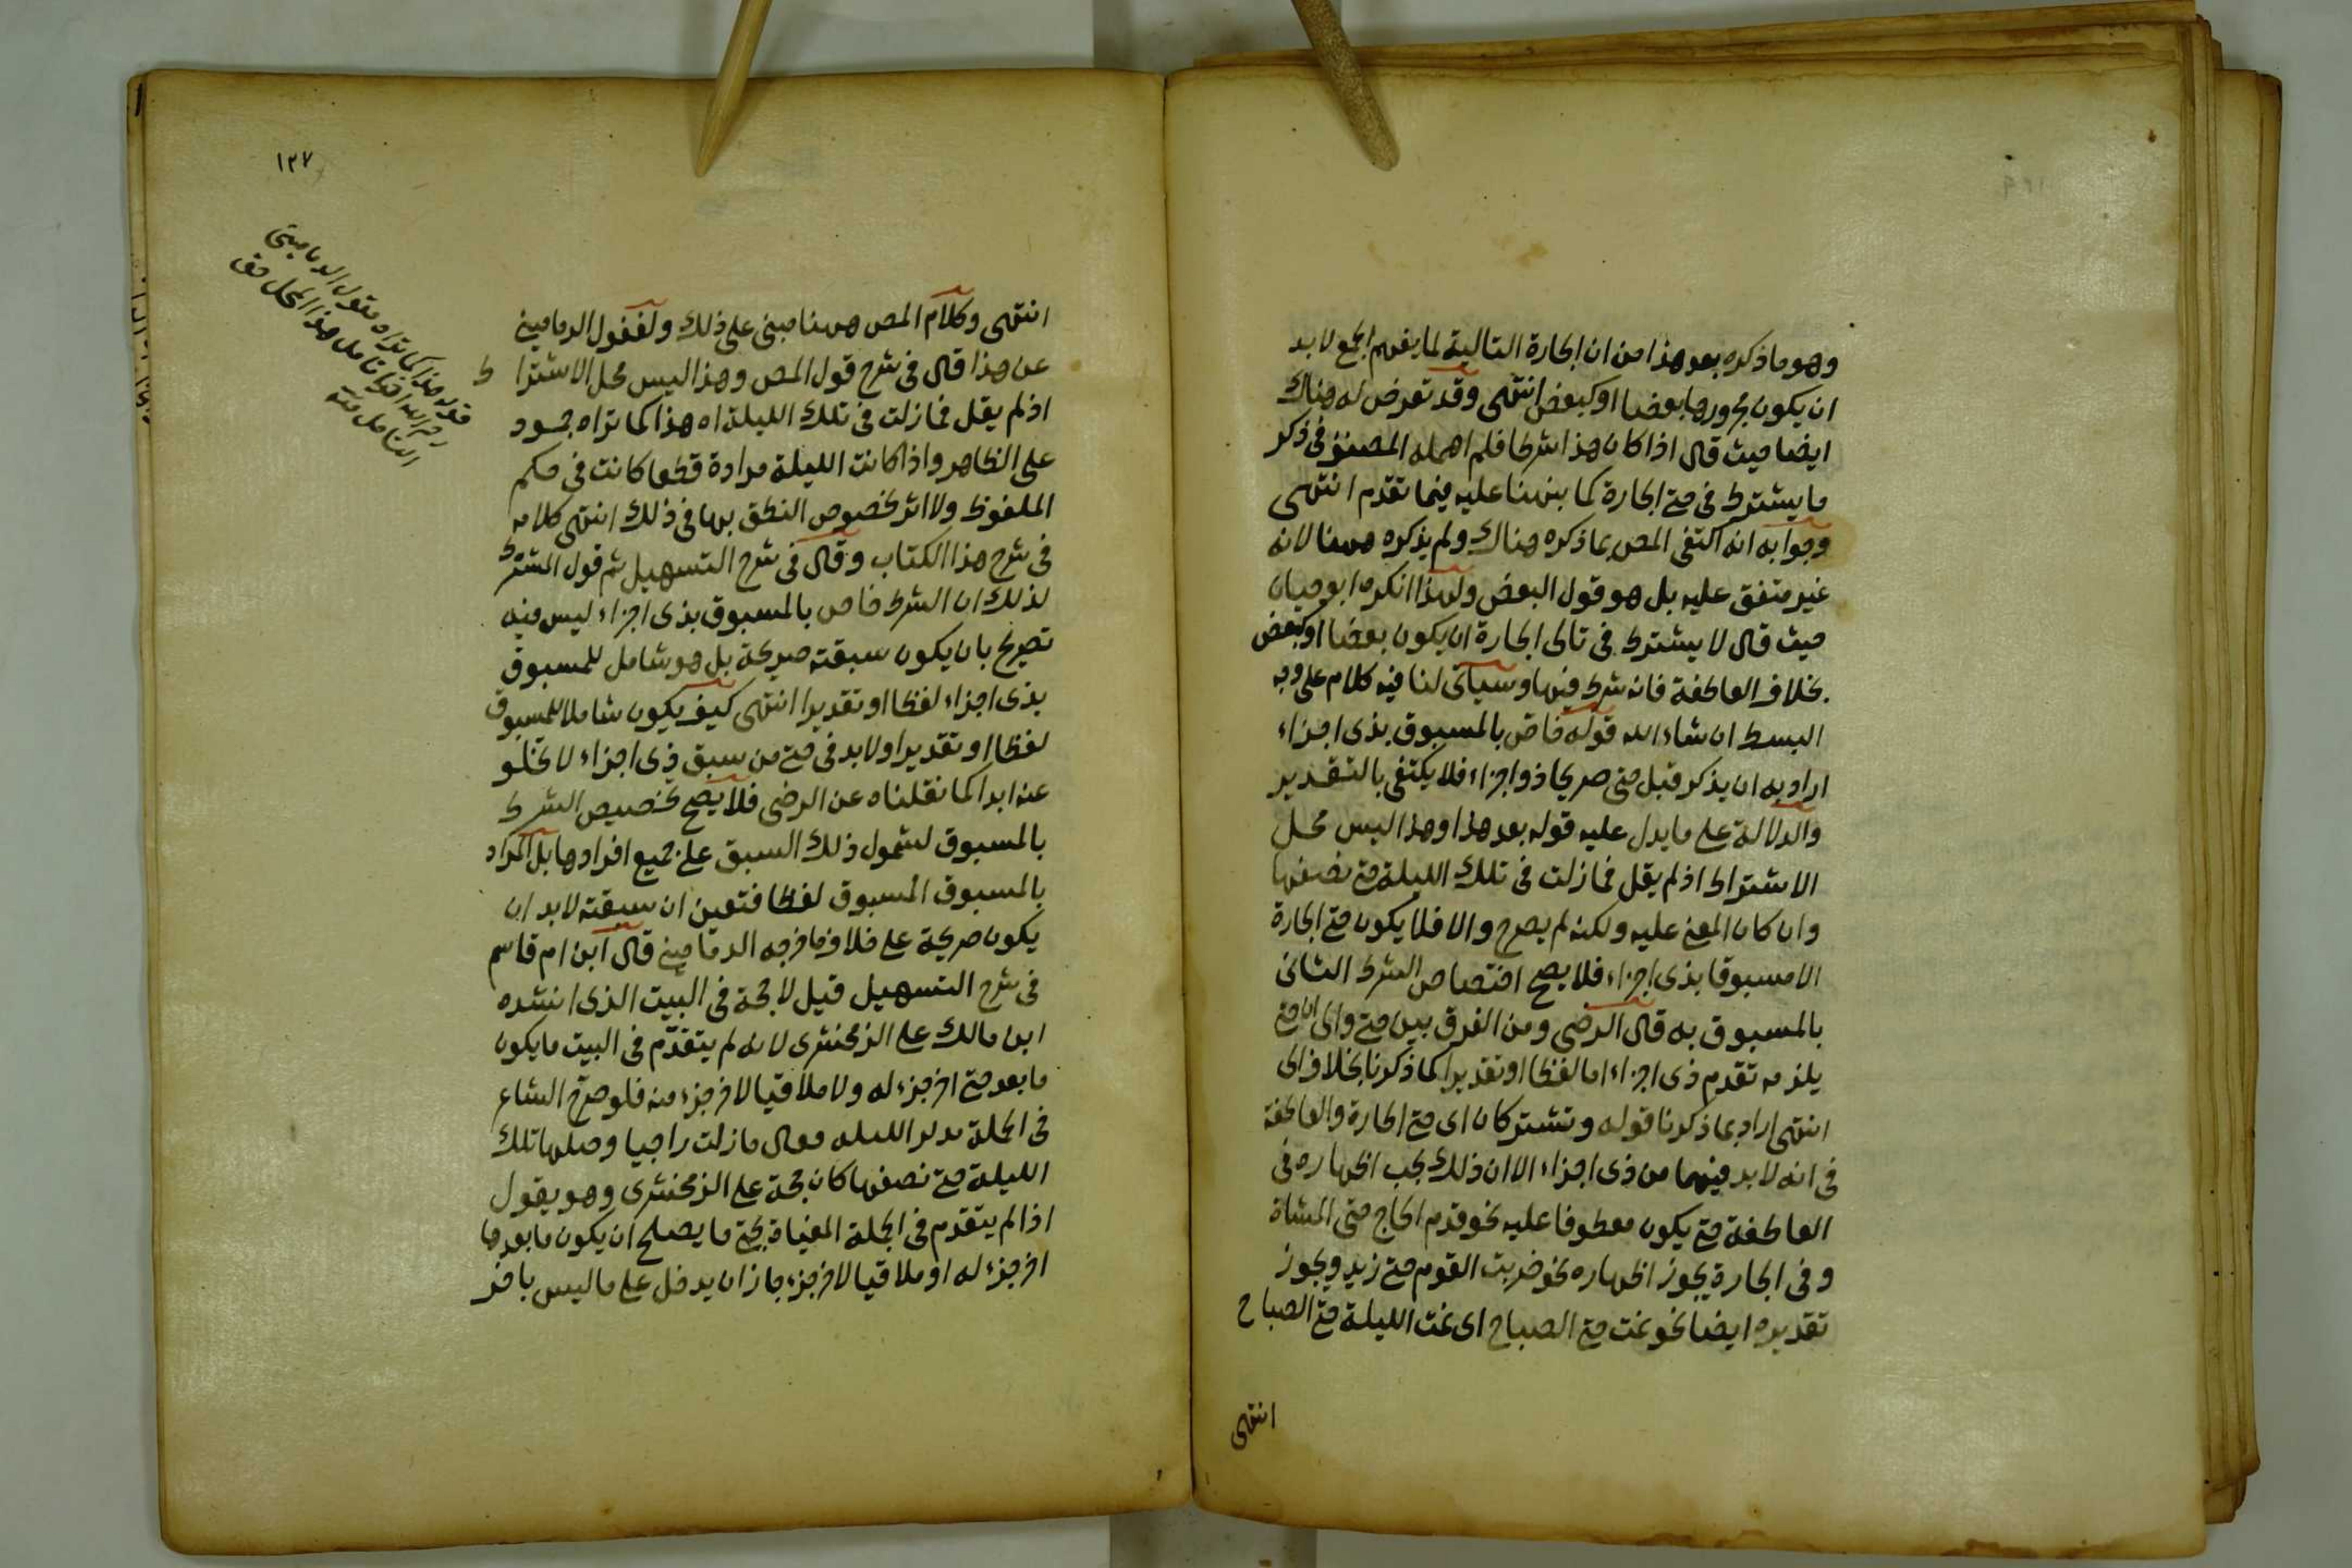 وهو ما ذكره بعد هذا من ان الجارة التالية لما يفهم الجمع لا بد
ان يكون مجرورها بعضا او كبعض انتهى وقد تعرض له هناك
ايضا حيث قال اذا كان هذا شرطا فلم اهمله المصنف في ذكر
ما يشترط في حتى الجارة كما نبهنا عليه فيما تقدم انتهى
وجوابه انه اكتفى المص بما ذكره هناك ولم يذكره ههنا لانه
غير متفق عليه بل هو قول البعض ولهذا انكره ابو حيان
حيث قال لا يشترط في تالى الجارة ان يكون بعضا او كبعض
بخلاف العاطفة فانه شرط فيها وسياتى لنا فيه كلام على وجه
البسط ان شاء الله قوله خاص بالمسبوق بذى اجزاء
اراد به ان يذكر قبل حتى صريحا ذو اجزاء فلا يكتفى بالتقدير
والدلالة على ما يدل عليه قوله بعد هذا وهذا ليس محل
الاشتراط اذ لم يقل فما زلت في تلك الليلة حتى نصفها
وان كان المعنى عليه ولكنه لم يصرح والا فلا يكون حتى الجارة
الا مسبوقا بذى اجزاء فلا يصح اختصاص الشرط الثانى
بالمسبوق به قال الرضى ومن الفرق بين حتى والى ان حتى
يلزمه تقدم ذى اجزاء اما لفظا او تقديرا كما ذكرنا بخلاف الى
انتهى اراد بما ذكرنا قوله وتشتركان اى حتى الجارة والعاطفة
في انه لا بد فيهما من ذى اجزاء الا ان ذلك يجب اظهاره في
العاطفة حتى يكون معطوفا عليه نحو قدم الحاج حتى المشاة
وفى الجارة يجوز اظهاره نحو ضربت القوم حتى زيد ويجوز
تقديره ايضا نحو نمت حتى الصباح اى نمت الليلة حتى الصباح
انتهى
١٢٧
انتهى وكلام المص ههنا مبنى على ذلك ولغفول الدمامينى
عن هذا قال في شرح قول المص وهذا ليس محل الاشتراط
اذ لم يقل فما زلت في تلك الليلة اه هذا كما تراه جمود
على الظاهر واذا كانت الليلة مرادة قطعا كانت في حكم
الملفوظ ولا اثر لخصوص النطق بها في ذلك انتهى كلامه
في شرح هذا الكتاب وقال في شرح التسهيل ثم قول المشترط
لذلك ان الشرط خاص بالمسبوق بذى اجزاء ليس فيه
تصريح بان يكون سبقته صريحة بل هو شامل للمسبوق
بذى اجزاء لفظا او تقديرا انتهى كيف يكون شاملا للمسبوق
لفظا او تقديرا ولا بد في حتى من سبق ذى اجزاء لا تخلو
عنه ابدا كما نقلناه عن الرضى فلا يصح تخصيص الشرط
بالمسبوق لشمول ذلك السبق على جميع افرادها بل المراد
بالمسبوق المسبوق لفظا فتعين ان سبقته لا بد ان
يكون صريحة على خلاف ما خرجه الدمامينى قال ابن ام قاسم
في شرح التسهيل قيل لا حجة في البيت الذى انشده
ابن مالك على الزمخشرى لانه لم يتقدم في البيت ما يكون
ما بعد حتى اخر جزء له ولا ملاقيا لاخر جزء منه فلو صرح الشاعر
في الجملة بذكر الليلة فقال ما زلت راجيا وصلها تلك
الليلة حتى نصفها كان حجة على الزمخشرى وهو يقول
اذا لم يتقدم في الجملة المغياة بحتى ما يصلح ان يكون ما بعدها
اخر جزء له او ملاقيا لاخر جزء جاز ان يدخل على ما ليس باخر
قوله هذا كما تراه مقول الدمامينى
رحم الله امرا تامل هذا المحل حق
التامل منه